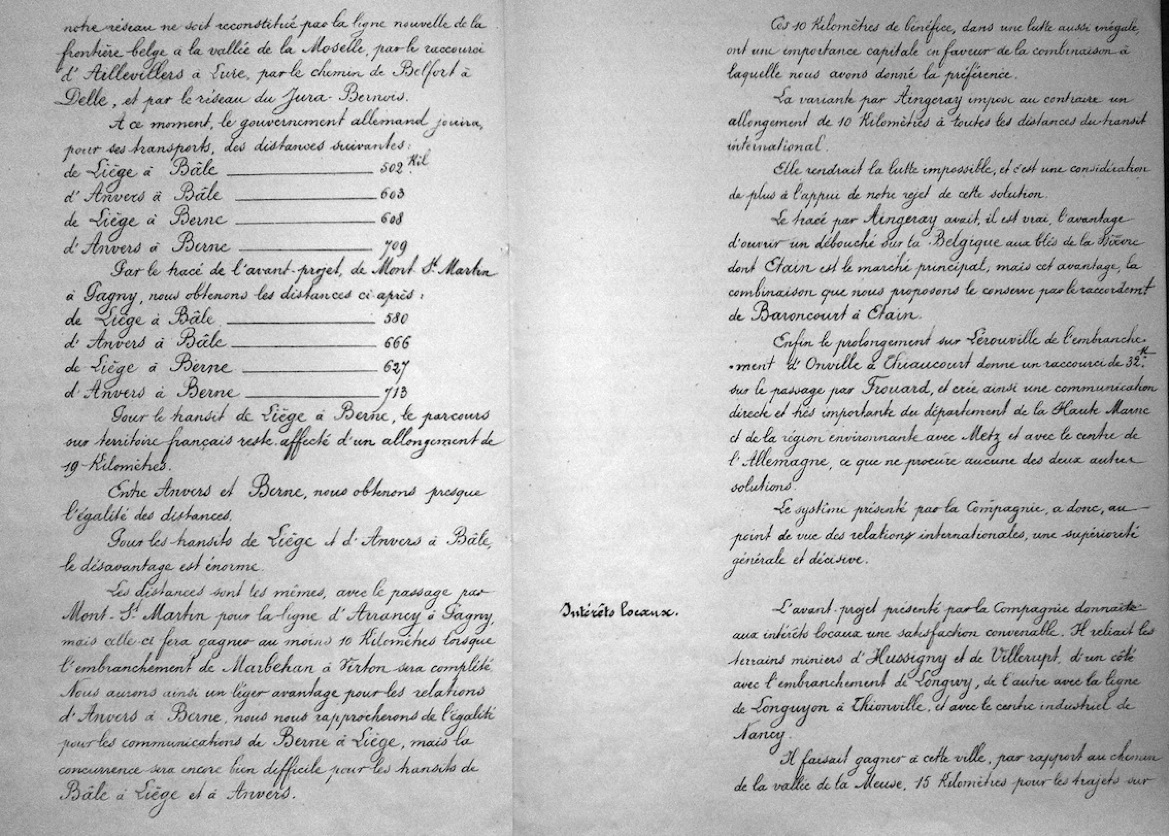 notre réseau ne soit reconstitué par la ligne nouvelle de la
frontière belge à la vallée de la Moselle, par le raccourci
d'Aillevillers à Lure, par le chemin de Belfort à
Delle, et par le réseau du Jura-Bernois.
A ce moment, le gouvernement allemand jouira,
pour ses transports, des distances suivantes:
de Liège à Bâle 502 Kil
d'Anvers à Bâle 603
de Liège à Berne 608
d'Anvers à Berne 709
Par le tracé de l'avant-projet, de Mont St Martin
à Pagny, nous obtenons les distances ci-après:
de Liège à Bâle 580
d'Anvers à Bâle 666
de Liège à Berne 627
d'Anvers à Berne 713
Pour le transit de Liège à Berne, le parcours
sur territoire français reste affecté d'un allongement de
19 Kilomètres.
Entre Anvers et Berne, nous obtenons presque
l'égalité des distances.
Pour les transits de Liège et d'Anvers à Bâle,
le désavantage est énorme.
Les distances sont les mêmes, avec le passage par
Mont-St Martin pour la ligne d'Arrancy à Pagny,
mais celle-ci fera gagner au moins 10 Kilomètres lorsque
l'embranchement de Marbehan à Virton sera complété
Nous aurons ainsi un léger avantage pour les relations
d'Anvers à Berne, nous nous rapprocherons de l'égalité
pour les communications de Berne à Liège, mais la
concurrence sera encore bien difficile pour les transits de
Bâle à Liège et à Anvers.
Ces 10 Kilomètres de bénéfice, dans une lutte aussi inégale,
ont une importance capitale en faveur de la combinaison à
laquelle nous avons donné la préférence.
La variante par Aingeray impose au contraire un
allongement de 10 Kilomètres à toutes les distances du transit
international.
Elle rendrait la lutte impossible, et c'est une considération
de plus à l'appui de notre rejet de cette solution.
Le tracé par Aingeray avait, il est vrai, l'avantage
d'ouvrir un débouché sur la Belgique aux blés de la
dont Etain est le marché principal; mais cet avantage, la
combinaison que nous proposons le conserve par le raccordemt
de Baroncourt à Etain.
Enfin le prolongement sur Lérouville de l'embranche-
-ment d'Onville à Thiaucourt donne un raccourci de 32 K.
sur le passage par Frouard, et crée ainsi une communication
directe et très importante du département de la Haute Marne
et de la région environnante avec Metz et avec le centre de
l'Allemagne, ce que ne procure aucune des deux autres
solutions.
Le système présenté par la Compagnie, a donc, au
point de vue des relations internationales, une supériorité
générale et décisive.
Intérêts locaux.
L'avant-projet présenté par la Compagnie donnait
aux intérêts locaux une satisfaction convenable. Il reliait les
terrains miniers d'Hussigny et de Villerupt, d'un côté
avec l'embranchement de Longwy, de l'autre avec la ligne
de Longuyon à Thionville, et avec le centre industriel de
Nancy.
Il faisait gagner à cette ville, par rapport au chemin
de la vallée de la Meuse, 15 Kilomètres pour les trajets sur